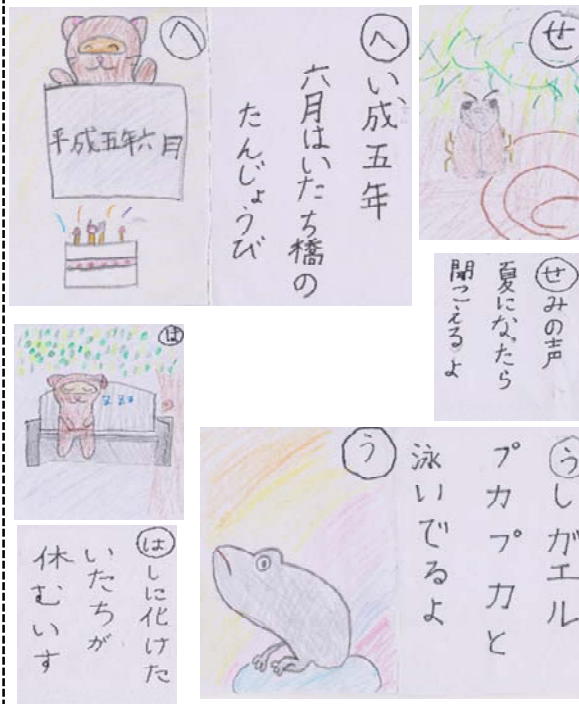 へ
平成五年六月
へい成五年
六月はいたち橋の
たんじょうび
せ
せみの声
夏になったら
聞こえるよ
は
zzz
はしに化けた
いたちが
休むいす
う
うしがエル
プカプカと
泳いでるよ